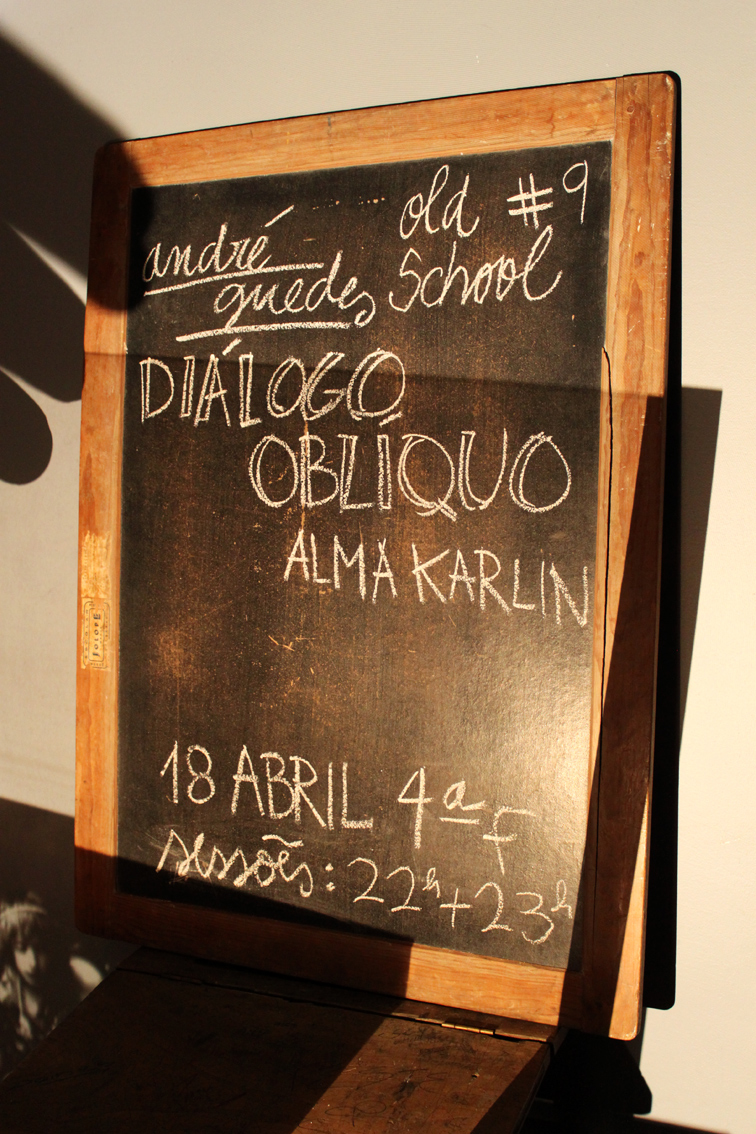 andré
guedes
old #9
School
DIÁLOGO
OBLÍQUO
ALMA KARLIN
18 ABRIL 4ª F
sessões: 22h + 23h